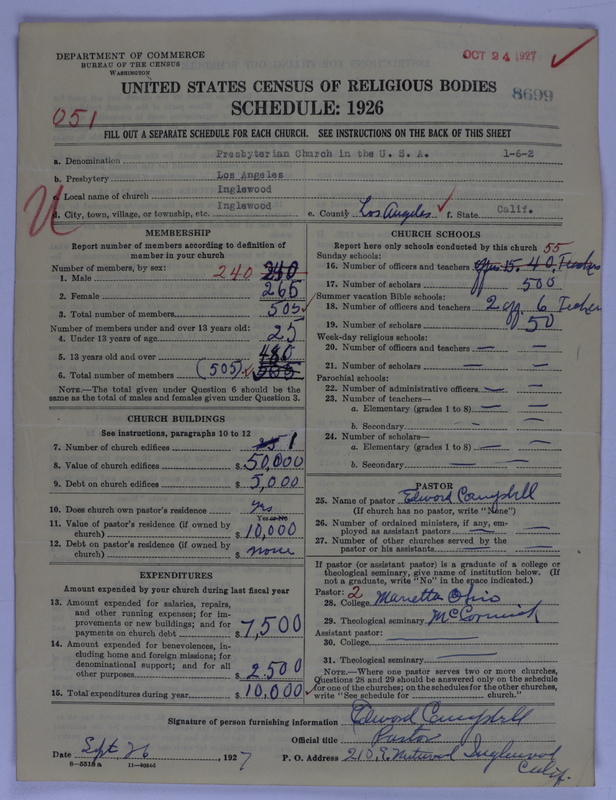 DEPARTMENT OF COMMERCE
BUREAU OF THE CENSUS
WASHINGTON
OCT 24 1927
UNITED STATES CENSUS OF RELIGIOUS BODIES
8699
SCHEDULE: 1926
051
FILL OUT A SEPARATE SCHEDULE FOR EACH CHURCH. SEE INSTRUCTIONS ON THE BACK OF THIS SHEET
a. Denomination Presbyterian Church in the U. S. A. 1-6-2
b. Presbytery Los Angeles
c. Local name of church Inglewood
d. City, town, village, or township, etc. Inglewood e. County Los Angeles f. State Calif.
MEMBERSHIP
Report number of members according to definition of member in your church
Number of members, by sex:
1. Male 240 240
2. Female 265
3. Total number of members 505
Number of members under and over 13 years old:
4. Under 13 years of age 25
5. 13 years old and over 480
6. Total number of members (505) 505
NOTE.—The total given under Question 6 should be
same as the total of males and females given under Question 3.
CHURCH BUILDINGS
See instructions, paragraphs 10 to 12
7. Number of church edifices 1
8. Value of church edifices $ 50,000
9. Debt on church edifices $ 5,000
10. Does church own pastor's residence? yes
Yes or No
11. Value of pastor's residence (if owned by
church) $ 10,000
12. Debt on pastor's residence (if owned by
church) $ none
EXPENDITURES
Amount expended by your church during last fiscal year
13. Amount expended for salaries, repairs,
and other running expenses; for im-
provements or new buildings; and for
payments on church debt $ 7,500
14. Amount expended for benevolences, in-
cluding home and foreign missions; for
denominational support; and for all
other purposes $ 2.500
15. Total expenditures during year $ 10,000
CHURCH SCHOOLS
Report here only schools conducted by this church 55
Sunday schools:
16. Number of officers and teachers off. 15. 40, Teachers
17. Number of scholars 500
Summer vacation Bible schools:
18. Number of officers and teachers 2 off. 6 Teachers
19. Number of scholars 50
Week-day religious schools:
20. Number of officers and teachers —
21. Number of scholars —
Parochial schools:
22. Number of administrative officers —
23. Number of teachers—
a. Elementary (grades 1 to 8) —
b. Secondary —
24. Number of scholars—
a. Elementary (grades 1 to 8) —
b. Secondary —
PASTOR
25. Name of pastor Edword Campbell
(If church has no pastor, write "None")
26. Number of ordained ministers, if any, em-
ployed as assistant pastors —
27. Number of other churches served by the
pastor or his assistants —
If pastor (or assistant pastor) is a graduate of a college or
theological seminary, give name of institution below. (If
not a graduate, write "No" in the space indicated.)
Pastor: 2
28. College Marietta Ohio
29. Theological seminary McCormick
Assistant pastor:
30. College —
31. Theological seminary —
NOTE.—Where one pastor serves two or more churches,
Questions 28 and 29 should be answered only on the schedule
for one of the churches; on the schedules for the other churches,
write "See schedule for church."
Signature of person furnishing information Edword Campbell
Official title Pastor
Date Sept 26, 1927 P. O. Address 210 E. Inglewood
Calif.
8—5518 a